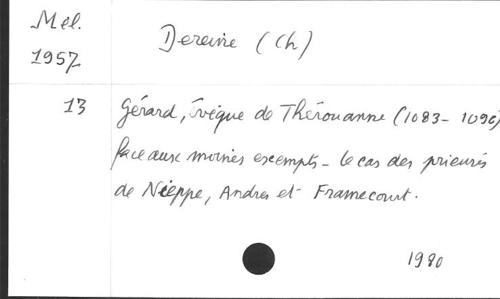 Mel.
1957
Dereine (Ch)
13
Gérard, Évêque de Thérouanne (1083-1096)
face aux moines exempts - le cas des prieurés
de Nieppe, Andres et Framecourt.
1980